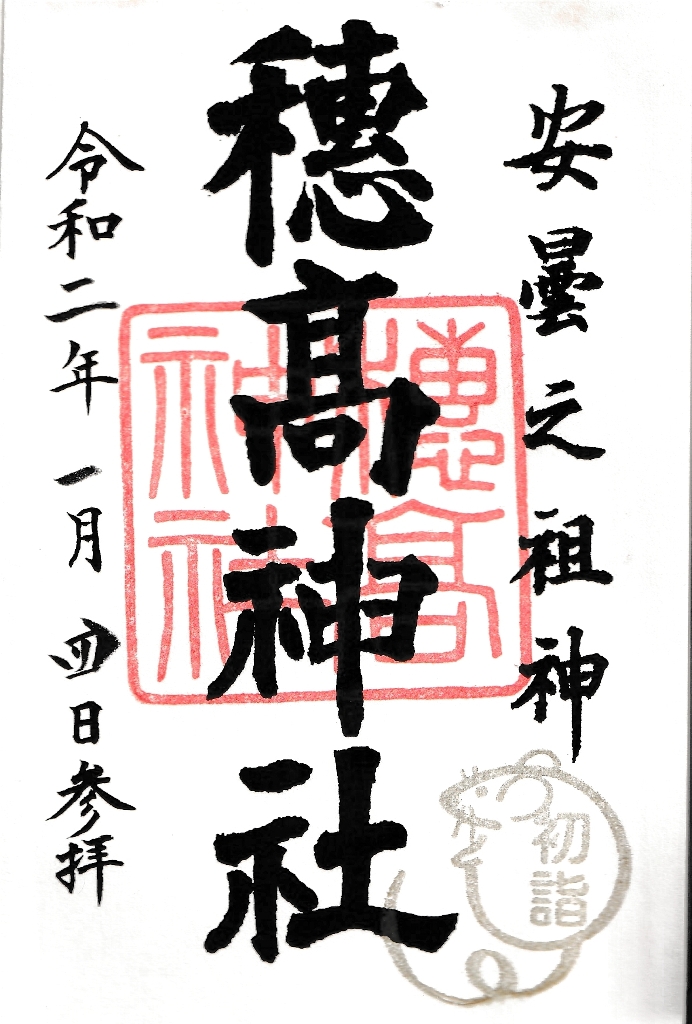 安曇之祖神
穂髙神社
穂高神社
令和二年一月四日参拝
初詣